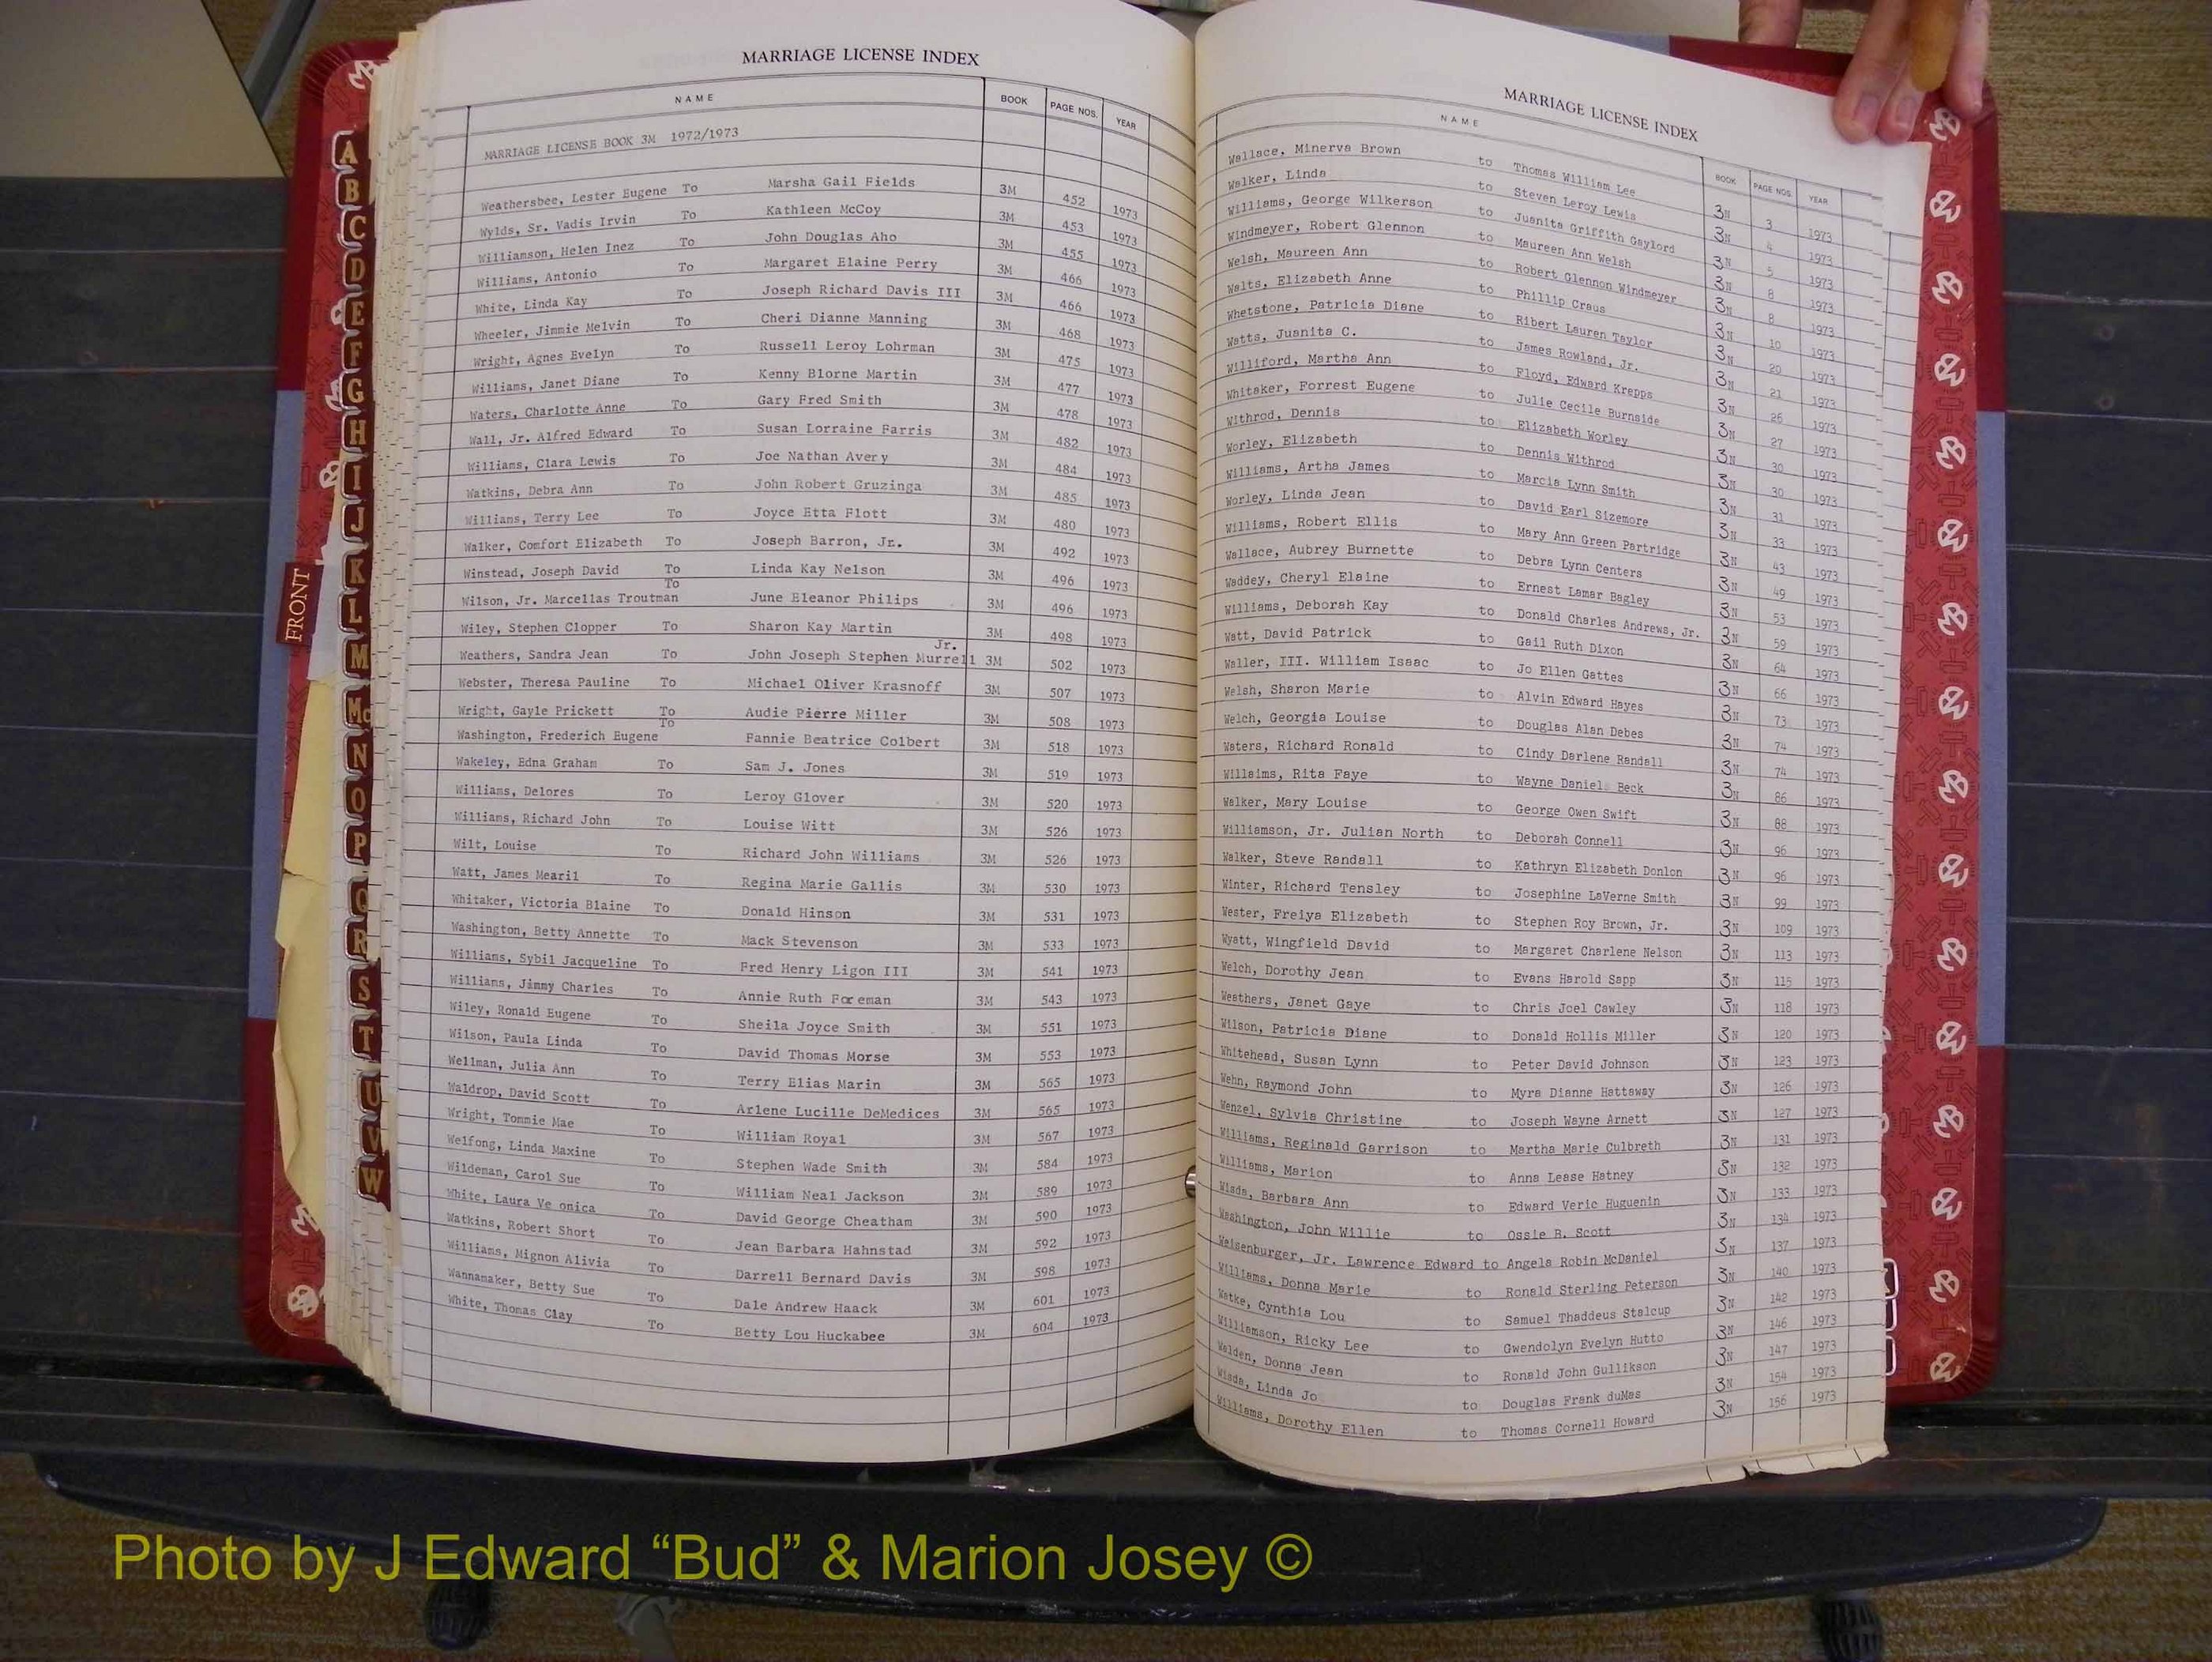 MARRIAGE LICENSE INDEX
NAME BOOK PAGE NOS. YEAR
MARRIAGE LICENSE BOOK 3M 1972/1973
Weathersbee, Lester Eugene To Marsha Gail Fields 3M 452 1973
Wylds, Sr. Vadis Irvin To Kathleen McCoy 3M 453 1973
Williamson, Helen Inez To John Douglas Aho 3M 455 1973
Williams, Antonio To Margaret Elaine Perry 3M 466 1973
White, Linda Kay To Joseph Richard Davis III 3M 466 1973
Wheeler, Jimmie Melvin To Cheri Dianne Manning 3M 468 1973
Wright, Agnes Evelyn To Russell Leroy Lohrman 3M 475 1973
Williams, Janet Diane To Kenny Blorne Martin 3M 477 1973
Waters, Charlotte Anne To Gary Fred Smith 3M 478 1973
Wall, Jr. Alfred Edward To Susan Lorraine Farris 3M 482 1973
Williams, Clara Lewis To Joe Nathan Avery 3M 484 1973
Watkins, Debra Ann To John Robert Gruzinga 3M 485 1973
Williams, Terry Lee To Joyce Etta Flott 3M 480 1973
Walker, Comfort Elizabeth To Joseph Barron, Jr. 3M 492 1973
Winstead, Joseph David To Linda Kay Nelson 3M 496 1973
Wilson, Jr. Marcellas Troutman To June Eleanor Philips 3M 496 1973
Wiley, Stephen Clopper To Sharon Kay Martin 3M 498 1973
Weathers, Sandra Jean To John Joseph Stephen Murrell Jr. 3M 502 1973
Webster, Theresa Pauline To Michael Oliver Krasnoff 3M 507 1973
Wright, Gayle Prickett To Audie Pierre Miller 3M 508 1973
Washington, Frederich Eugene To Fannie Beatrice Colbert 3M 518 1973
Wakeley, Edna Graham To Sam J. Jones 3M 519 1973
Williams, Delores To Leroy Glover 3M 520 1973
Williams, Richard John To Louise Witt 3M 526 1973
Wilt, Louise To Richard John Williams 3M 526 1973
Watt, James Mearil To Regina Marie Gallis 3M 530 1973
Whitaker, Victoria Blaine To Donald Hinson 3M 531 1973
Washington, Betty Annette To Mack Stevenson 3M 533 1973
Williams, Sybil Jacqueline To Fred Henry Ligon III 3M 541 1973
Williams, Jimmy Charles To Annie Ruth Foreman 3M 543 1973
Wiley, Ronald Eugene To Sheila Joyce Smith 3M 551 1973
Wilson, Paula Linda To David Thomas Morse 3M 553 1973
Wellman, Julia Ann To Terry Elias Marin 3M 565 1973
Waldrop, David Scott To Arlene Lucille DeMedices 3M 565 1973
Wright, Tommie Mae To William Royal 3M 567 1973
Welfong, Linda Maxine To Stephen Wade Smith 3M 584 1973
Wildeman, Carol Sue To William Neal Jackson 3M 589 1973
White, Laura Ve onica To David George Cheatham 3M 590 1973
Watkins, Robert Short To Jean Barbara Hahnstad 3M 592 1973
Williams, Mignon Alivia To Darrell Bernard Davis 3M 598 1973
Wannamaker, Betty Sue To Dale Andrew Haack 3M 601 1973
White, Thomas Clay To Betty Lou Huckabee 3M 604 1973
MARRIAGE LICENSE INDEX
NAME BOOK PAGE NOS. YEAR
Wallace, Minerva Brown to Thomas William Lee 3N 3 1973
Walker, Linda to Steven Leroy Lewis 3N 4 1973
Williams, George Wilkerson to Juanita Griffith Gaylord 3N 5 1973
Windmeyer, Robert Glennon to Maureen Ann Welsh 3N 8 1973
Welsh, Maureen Ann to Robert Glennon Windmeyer 3N 8 1973
Walts, Elizabeth Anne to Phillip Craus 3N 10 1973
Whetstone, Patricia Diane to Ribert Lauren Taylor 3N 20 1973
Watts, Juanita C. to James Rowland, Jr. 3N 21 1973
Williford, Martha Ann to Floyd, Edward Krepps 3N 26 1973
Whitaker, Forrest Eugene to Julie Cecile Burnside 3N 27 1973
Withrod, Dennis to Elizabeth Worley 3N 30 1973
Worley, Elizabeth to Dennis Withrod 3N 30 1973
Williams, Artha James to Marcia Lynn Smith 3N 31 1973
Worley, Linda Jean to David Earl Sizemore 3N 33 1973
Williams, Robert Ellis to Mary Ann Green Partridge 3N 43 1973
Wallace, Aubrey Burnette to Debra Lynn Centers 3N 49 1973
Waddey, Cheryl Elaine to Ernest Lamar Bagley 3N 53 1973
Williams, Deborah Kay to Donald Charles Andrews, Jr. 3N 59 1973
Watt, David Patrick to Gail Ruth Dixon 3N 64 1973
Waller, III. William Isaac to Jo Ellen Gattes 3N 66 1973
Welsh, Sharon Marie to Alvin Edward Hayes 3N 73 1973
Welch, Georgia Louise to Douglas Alan Debes 3N 74 1973
Waters, Richard Ronald to Cindy Darlene Randall 3N 74 1973
Willaims, Rita Faye to Wayne Daniel Beck 3N 86 1973
Walker, Mary Louise to George Owen Swift 3N 88 1973
Williamson, Jr. Julian North to Deborah Connell 3N 96 1973
Walker, Steve Randall to Kathryn Elizabeth Donlon 3N 96 1973
Winter, Richard Tensley to Josephine LaVerne Smith 3N 99 1973
Wester, Freiya Elizabeth to Stephen Roy Brown, Jr. 3N 109 1973
Wyatt, Wingfield David to Margaret Charlene Nelson 3N 113 1973
Welch, Dorothy Jean to Evans Harold Sapp 3N 115 1973
Weathers, Janet Gaye to Chris Joel Cawley 3N 118 1973
Wilson, Patricia Diane to Donald Hollis Miller 3N 120 1973
Whitehead, Susan Lynn to Peter David Johnson 3N 123 1973
Wehn, Raymond John to Myra Dianne Hattaway 3N 126 1973
Wenzel, Sylvia Christine to Joseph Wayne Arnett 3N 127 1973
Williams, Reginald Garrison to Martha Marie Culbreth 3N 131 1973
Williams, Marion to Anna Lease Hatney 3N 132 1973
Wisda, Barbara Ann to Edward Veric Huguenin 3N 133 1973
Washington, John Willie to Ossie B. Scott 3N 134 1973
Weisenburger, Jr. Lawrence Edward to Angela Robin McDaniel 3N 137 1973
Williams, Donna Marie to Ronald Sterling Peterson 3N 140 1973
Watke, Cynthia Lou to Samuel Thaddeus Stalcup 3N 142 1973
Williamson, Ricky Lee to Gwendolyn Evelyn Hutto 3N 146 1973
Walden, Donna Jean to Ronald John Gullikson 3N 147 1973
Wisda, Linda Jo to Douglas Frank duMas 3N 154 1973
Williams, Dorothy Ellen to Thomas Cornell Howard 3N 156 1973
FRONT
A
B
C
D
E
F
G
H
I
J
K
L
M
Mc
N
O
P
Q
R
S
T
U
V
W
Photo by J Edward “Bud” & Marion Josey ©